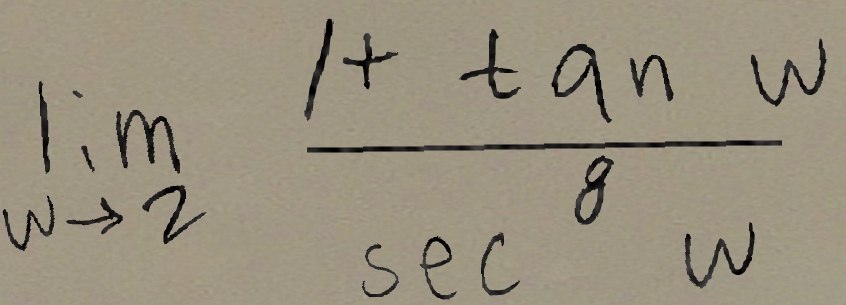 $\lim_{w \to 2} \frac{1 + \tan w}{\sec^8 w}$